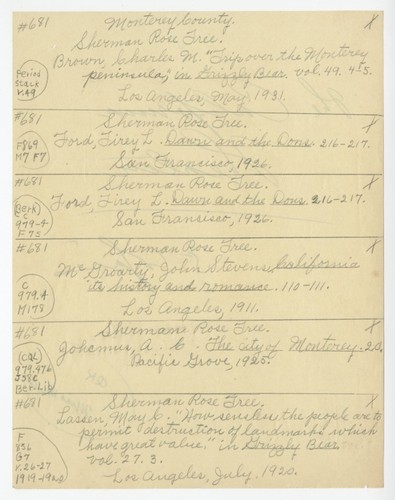 #681 Monterey County. X
Sherman Rose Tree.
Brown, Charles M. "Trip over the Monterey
Period
Stack
v.49
peninsula," in Grizzly Bear. vol. 49. 4-5.
Los Angeles, May, 1931.
#681 Sherman Rose Tree. X
F869
M7 F7
Ford, Tirey L. Dawn and the Dons. 216-217.
San Francisco, 1926.
#681 Sherman Rose Tree. X
(Berk)
C
979.4
F75
Ford, Tirey L. Dawn and the Dons. 216-217.
San Francisco, 1926.
#681 Sherman Rose Tree. X
C
979.4
M178
McGroarty, John Stevens. California
its history and romance. 110-111.
Los Angeles, 1911.
#681 Shermans Rose Tree. X
(Cal)
979.476
Ber. Lib
A. C. The City of Monterey. 20.
Pacific Grove, 1925.
#681 Sherman Rose Tree. X
Lassen, May C. "How senseless the people are to
permit destruction of landmarks which
have great value," in Grizzly Bear.
F
856
G7
v.26-27
1919-1920
vol. 27. 3.
Los Angeles, July, 1920.